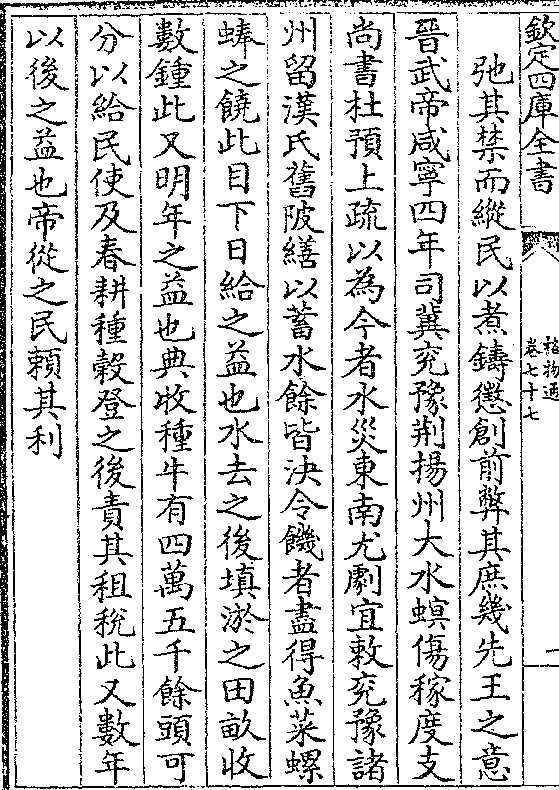 欽定四庫全書
格物通
卷七十七
一
弛其禁而縱民以煮鑄懲創前弊其庶幾先王之意
晉武帝咸寧四年司冀兖豫荆揚州大水螟傷稼度支
尚書杜預上疏以為今者水災東南尤劇宜敕兖豫諸
州留漢氏舊陂繕以蓄水餘皆決令饑者盡得魚菜螺
蜯之饒此目下日給之益也水去之後填淤之田畝收
數鍾此又明年之益也典收種牛有四萬五千餘頭可
分以給民使及春耕種穀登之後責其租稅此又數年
以後之益也帝從之民賴其利